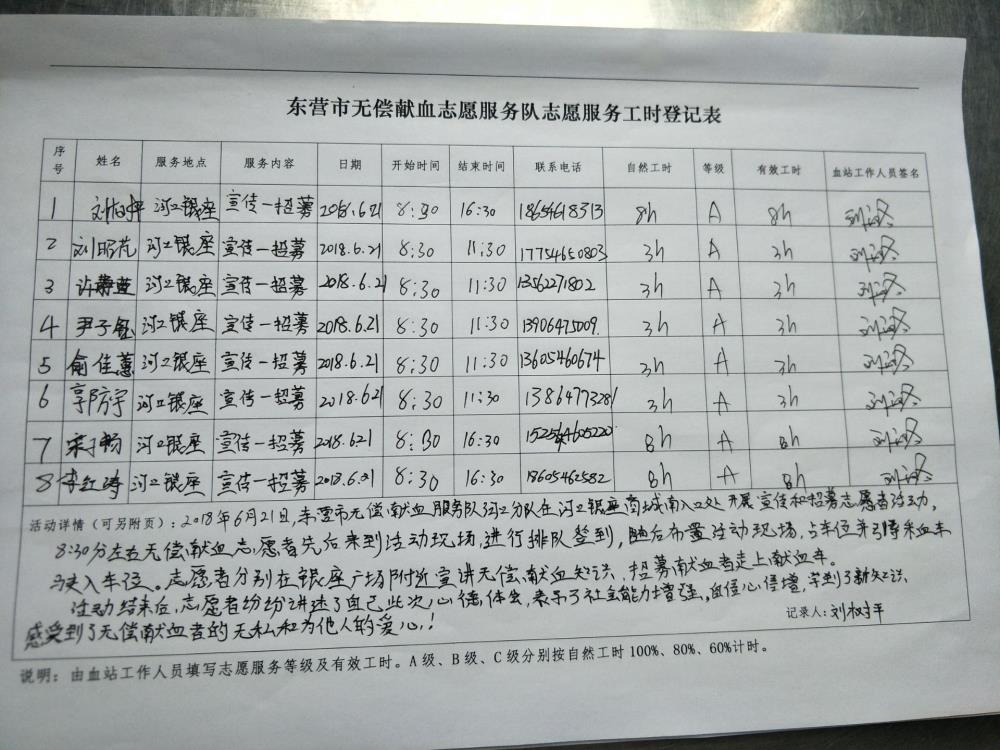 东营市无偿献血志愿服务队志愿服务工时登记表
序号 姓名 服务地点 服务内容 日期 开始时间 结束时间 联系电话 自然工时 等级 有效工时 血站工作人员签名
1 刘树平 河口银座 宣传一招募 2018.6.21 8:30 16:30 18654618313 8h A 8h
2 刘昭苑 河口银座 宣传一招募 2018.6.21 8:30 11:30 17754650803 3h A 3h
3 河口银座 宣传一招募 2018.6.21 8:30 11:30 13562271802 3h A 3h
4 尹子钰 河口银座 宣传一招募 2018.6.21 8:30 11:30 13906475009 3h A 3h
5 俞佳蕙 河口银座 宣传一招募 2018.6.21 8:30 11:30 13605460674 3h A 3h
6 郭方宇 河口银座 宣传一招募 2018.6.21 8:30 11:30 13864773281 3h A 3h
7 河口银座 宣传一招募 2018.6.21 8:30 16:30 8h A 8h
8 李红涛 河口银座 宣传一招募 2018.6.21 8:30 16:30 18605465582 8h A 8h
活动详情(可另附页):2018年6月21日,东营市无偿献血服务队河口分队在河口银座商城南入口处开展宣传和招募志愿者活动,
8:30分左右无偿献血志愿者先后来到活动现场,进行排队签到,随后布置活动现场,占车位并引导采血车
驶入车位。志愿者分别在银座广场附近宣讲无偿献血知识,招募献血者走上献血车。
活动结束后,志愿者纷纷讲述了自己此次心得体会,表示了社会能力增强,自信心倍增,学到了新知识,
感受到了无偿献血者的无私和为他人的爱心!
记录人:刘树平
说明:由血站工作人员填写志愿服务等级及有效工时。A级、B级、C级分别按自然工时100%、80%、60%计时。